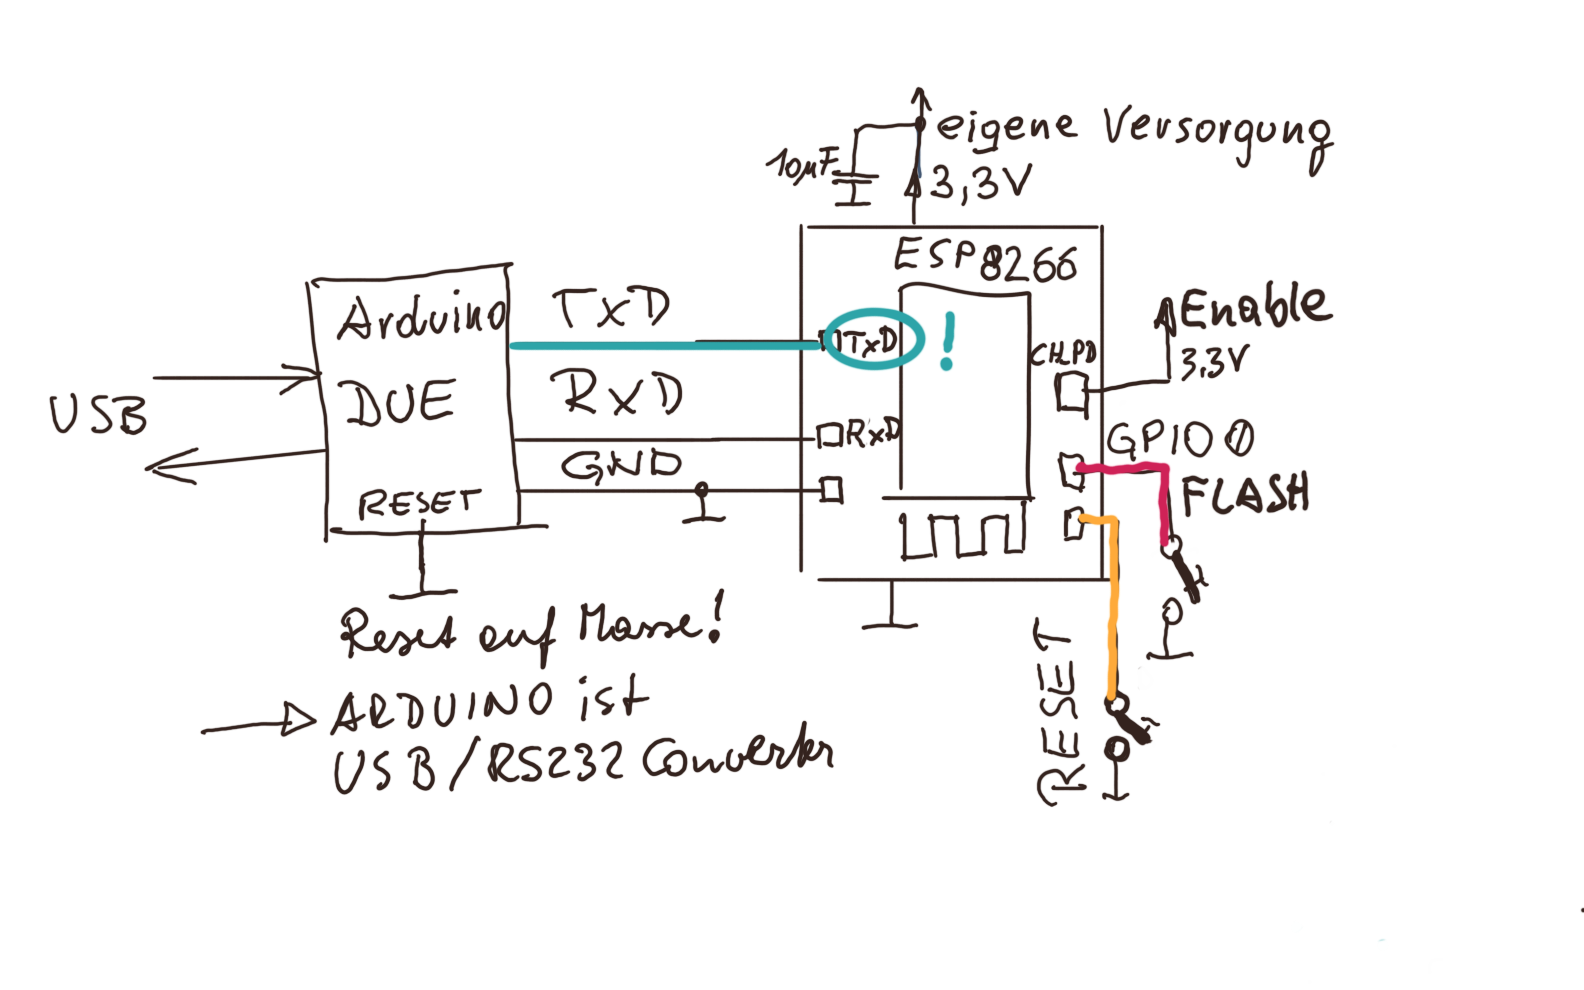 eigene Versorgung
10µF
3,3V
ESP8266
Arduino
DUE
RESET
USB
TxD
RxD
GND
TxD !
RxD
CH_PD
Enable
3,3V
GPIO 0
FLASH
RESET
Reset auf Masse!
ARDUINO ist
USB/RS232 Converter